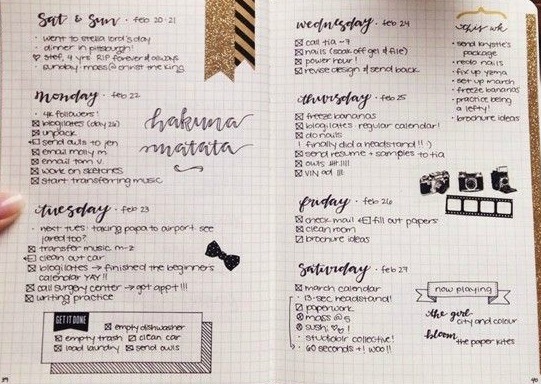 Sat & Sun · feb 20-21
· went to stella lord's day
· dinner in pittsburgh!
♡ stef, 4 yrs. RIP forever & always
· sunday mass @ christ the king
monday · feb 22
· 4k followers!
blogilates (day 26)
unpack
send owls to jen
email molly m
email tom v.
work on sketches
start transferring music
hakuna
matata
tuesday · feb 23
· next tues: taking papa to airport see
jared too?
transfer music m-z
clean out car
blogilates → finished the beginners
calendar YAY!!
call surgery center → got appt!!!
writing practice
GET IT DONE
empty dishwasher
empty trash clean car
load laundry send owls
39
wednesday · feb 24
call tia ~7
nails (soak off gel & file)
power hour!
revise design & send back
thursday · feb 25
freeze bananas
blogilates · regular calendar!
do nails
! finally did a headstand!! :)
send resume + samples to tia
owls !!! !!!!
VIN ad !!!
friday · feb 26
check mail fill out papers
clean room
brochure ideas
saturday · feb 27
march calendar
· 13-sec headstand!
paperwork
mass @ 5
sushi ♡ !
· studioblr collective!
· 60 seconds +! woo!!
this wk
· send krystle's
package
· redo nails
· fix up
· set up march
· freeze bananas
· practice being
a lefty!
· brochure ideas
now playing
the girl-
city and colour
bloom-
the paper kites
40